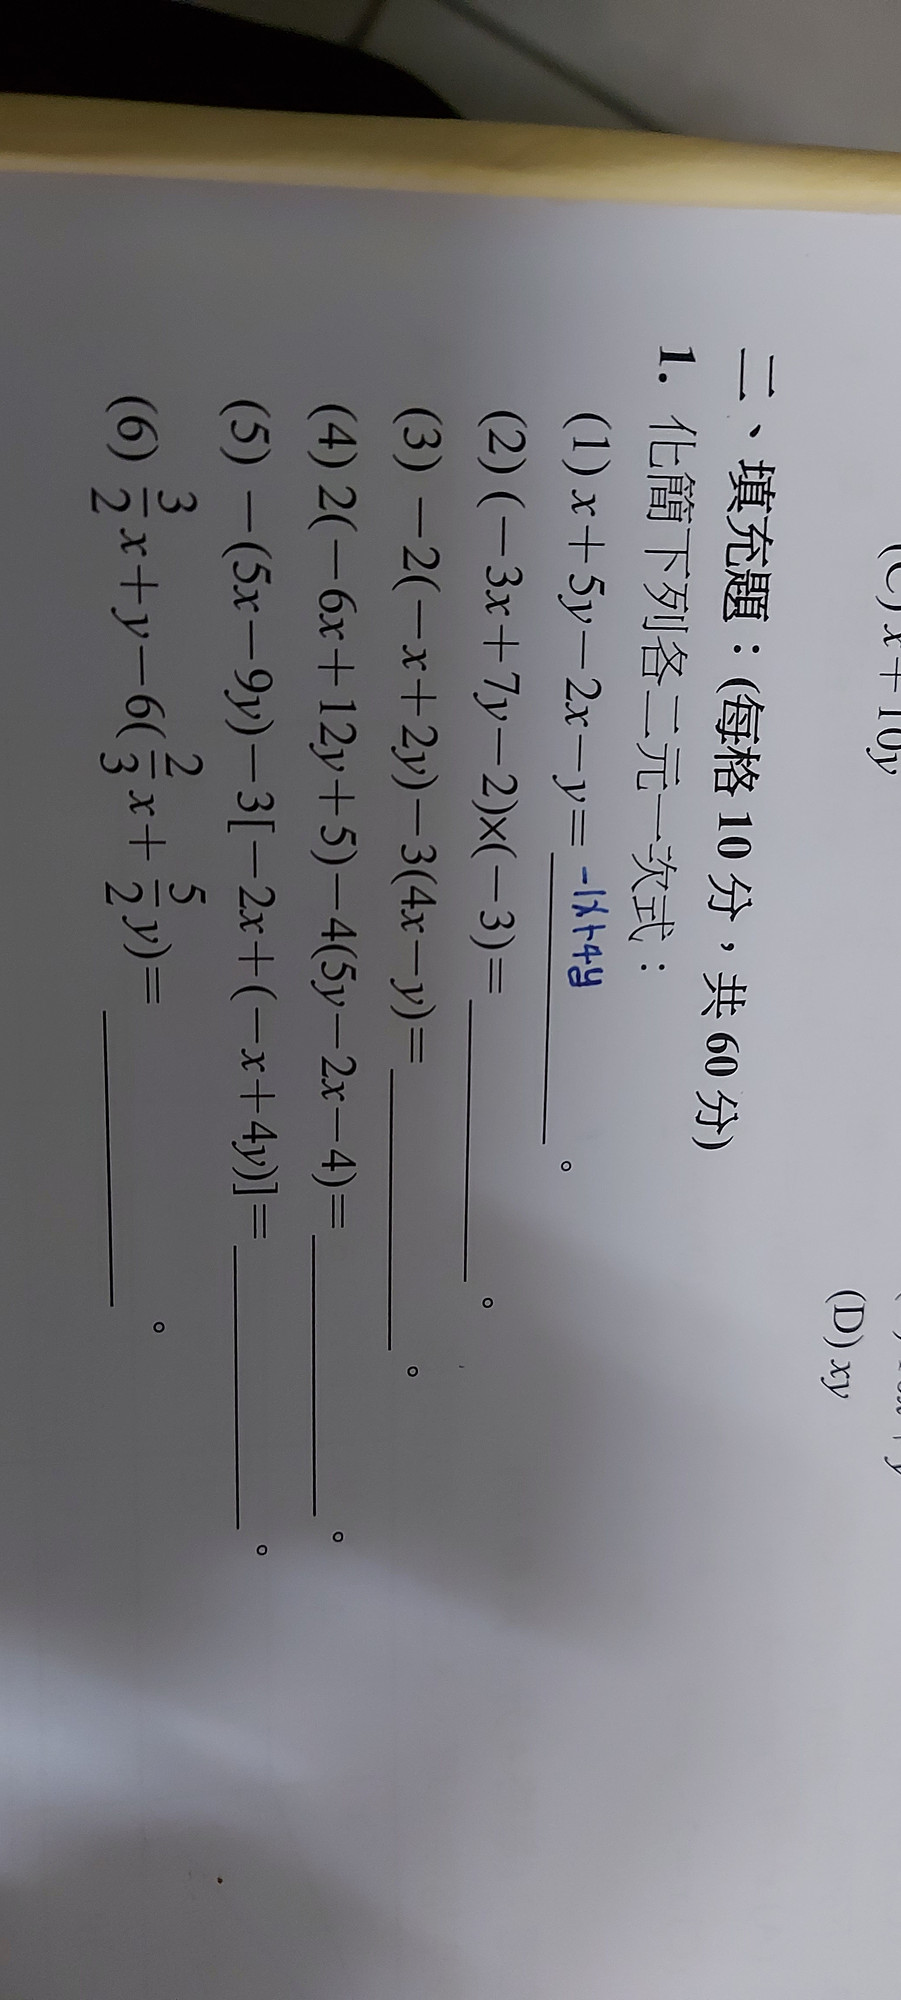 (C) x＋10y
(D) xy
二、填充題：(每格 10 分，共 60 分)
1. 化簡下列各二元一次式：
(1) x＋5y－2x－y＝ -1x+4y 。
(2) (－3x＋7y－2)×(－3)＝ 。
(3) －2(－x＋2y)－3(4x－y)＝ 。
(4) 2(－6x＋12y＋5)－4(5y－2x－4)＝ 。
(5) －(5x－9y)－3[－2x＋(－x＋4y)]＝ 。
(6) 3/2 x＋y－6(2/3 x＋5/2 y)＝ 。